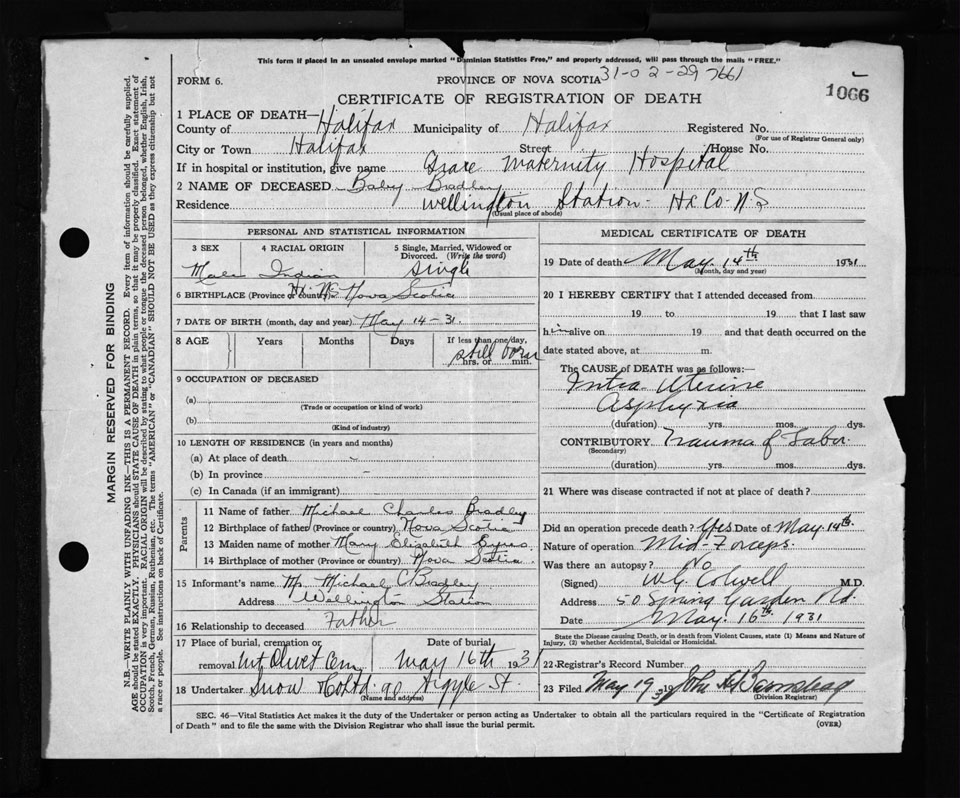 This form if placed in an unsealed envelope marked "Dominion Statistics Free," and properly addressed, will pass through the mails "FREE."
FORM 6.
PROVINCE OF NOVA SCOTIA 31-02-29 7661
CERTIFICATE OF REGISTRATION OF DEATH
1066
1 PLACE OF DEATH—
County of Halifax Municipality of Halifax Registered No.
(For use of Registrar General only)
City or Town Halifax Street House No.
If in hospital or institution, give name Grace Maternity Hospital
2 NAME OF DECEASED Baby Bradley
Residence Wellington Station - Hx Co - N S
(Usual place of abode)
PERSONAL AND STATISTICAL INFORMATION
3 SEX 4 RACIAL ORIGIN 5 Single, Married, Widowed or Divorced. (Write the word)
Male Indian Single
6 BIRTHPLACE (Province or country) Hx. N.S. Nova Scotia
7 DATE OF BIRTH (month, day and year) May 14-31.
8 AGE Years Months Days If less than one day,
still born
hrs. or min.
9 OCCUPATION OF DECEASED
(a)
(Trade or occupation or kind of work)
(b)
(Kind of industry)
10 LENGTH OF RESIDENCE (in years and months)
(a) At place of death
(b) In province
(c) In Canada (if an immigrant)
Parents
11 Name of father Michael Charles Bradley
12 Birthplace of father (Province or country) Nova Scotia
13 Maiden name of mother Mary Elizabeth
14 Birthplace of mother (Province or country) Nova Scotia
15 Informant's name Mr. Michael C Bradley
Address Wellington Station
16 Relationship to deceased Father
17 Place of burial, cremation or removal Mt Olivet Cem Date of burial May 16th 1931
18 Undertaker Snow & Co Ltd 90 Argyle St.
(Name and address)
MEDICAL CERTIFICATE OF DEATH
19 Date of death May. 14th 1931
(Month, day and year)
20 I HEREBY CERTIFY that I attended deceased from
19 to 19 that I last saw
him alive on 19 and that death occurred on the
date stated above, at m.
The CAUSE OF DEATH was as follows:—
Intra Uterine
Asphyxia
(duration) yrs. mos. dys.
CONTRIBUTORY Trauma of Labor.
(Secondary)
(duration) yrs. mos. dys.
21 Where was disease contracted if not at place of death?
Did an operation precede death? Yes Date of May 14th.
Nature of operation Mid-Forceps.
Was there an autopsy? No
(Signed) W.G. Colwell M.D.
Address 50 Spring Garden Rd.
Date May. 16th 1931
State the Disease causing Death, or in death from Violent Causes, state (1) Means and Nature of Injury, (2) whether Accidental, Suicidal or Homicidal.
22 Registrar's Record Number
23 Filed May 19 1931 John
(Division Registrar)
SEC. 46—Vital Statistics Act makes it the duty of the Undertaker or person acting as Undertaker to obtain all the particulars required in the "Certificate of Registration
of Death" and to file the same with the Division Registrar who shall issue the burial permit.
(OVER)
MARGIN RESERVED FOR BINDING
N.B.—WRITE PLAINLY WITH UNFADING INK—THIS IS A PERMANENT RECORD. Every item of information should be carefully supplied.
AGE should be stated EXACTLY. PHYSICIANS should STATE CAUSE OF DEATH in plain terms, so that it may be properly classified. Exact statement of
OCCUPATION is very important. RACIAL ORIGIN will be described by stating to what people or tongue the deceased person belonged, whether English, Irish,
Scotch, French, German, Russian, Ruthenian, etc. The terms "AMERICAN" or "CANADIAN" SHOULD NOT BE USED as they express citizenship but not
a race or people. See instructions on back of Certificate.